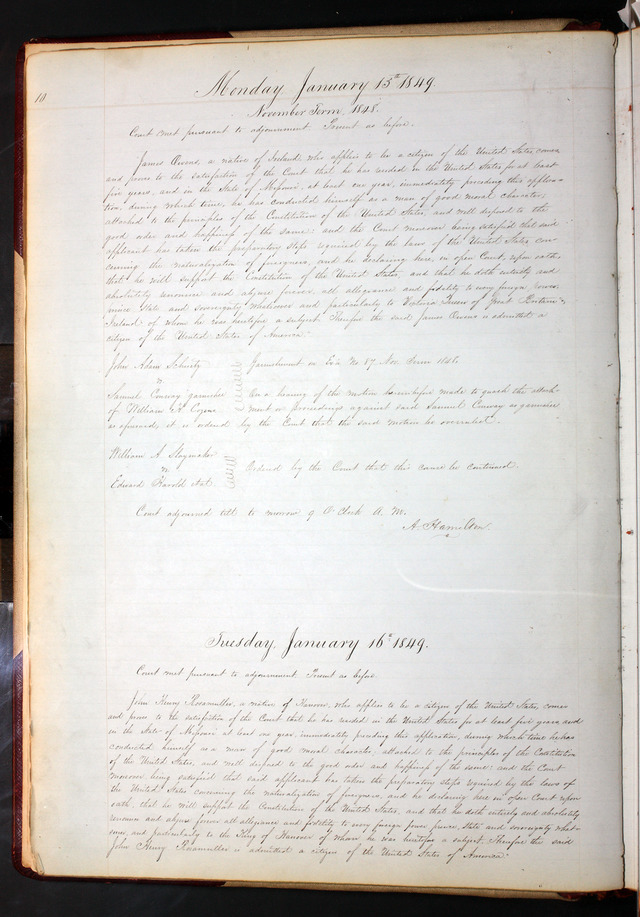 10
Monday, January 15th 1849.
November Term, 1848.
Court met pursuant to adjournment. Present as before.
James Owens, a native of Ireland who applies to be a citizen of the United States, comes
and proves to the satisfaction of the Court that he has resided in the United States for at least
five years, and in the State of Missouri, at least one year, immediately preceding this applica-
tion, during which time, he has conducted himself as a man of good moral character,
attached to the principles of the Constitution of the United States, and well disposed to the
good order and happiness of the same: and the Court moreover being satisfied that said
applicant has taken the preparatory steps required by the laws of the United States, con-
cerning the naturalization of foreigners, and he declaring here, in open Court, upon oath,
that he will support the Constitution of the United States, and that he doth entirely and
absolutely renounce and abjure forever all allegiance and fidelity to every foreign power,
prince State and sovereignty whatsoever and particularly to Victoria Queen of Great Britain &
Ireland of whom he was heretofore a subject. Therefore the said James Owens is admitted a
citizen of the United States of America.
John Adam
vs
Garnishment on Ex'n No 87 Nov. Term 1846.
Samuel Conway garnishee
On a hearing of the motion heretofore made to quash the attach-
of William
ment or proceedings against said Samuel Conway as garnishee
as aforesaid, it is ordered by the Court that the said motion be overruled.
William A Slaymaker
vs
Ordered by the Court that this cause be continued.
Edward Harold
Court adjourned till to morrow 9 O'Clock A. M.
A. Hamilton.
Tuesday, January 16th 1849.
Court met pursuant to adjournment. Present as before.
John Henry Rosamuller, a native of Hanover, who applies to be a citizen of the United States, comes
and proves to the satisfaction of the Court that he has resided in the United States for at least five years, and
in the State of Missouri at least one year, immediately preceding this application, during which time he has
conducted himself as a man of good moral character, attached to the principles of the Constitution
of the United States, and well disposed to the good order and happiness of the same: and the Court
moreover being satisfied that said applicant has taken the preparatory steps required by the laws of
the United States concerning the naturalization of foreigners, and he declaring here in open Court upon
oath, that he will support the Constitution of the United States, and that he doth entirely and absolutely
renounce and abjure forever all allegiance and fidelity to every foreign power, prince, State and sovereignty what-
soever, and particularly to the King of Hanover of whom he was heretofore a subject. Therefore the said
John Henry Rosamuller is admitted a citizen of the United States of America.